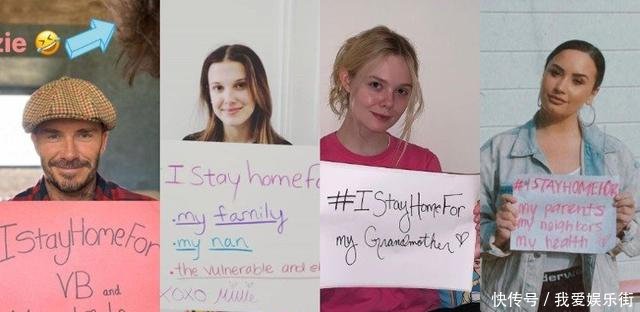 zie
I StayHomeFor
VB and
I Stay home fo
• my family
• my nan
• the vulnerable and el
XOXO Millie
#IStayHomeFor
my Grandmother
#ISTAYHOMEFOR
my parents
my neighbors
my health
快传号 / 我爱娱乐街